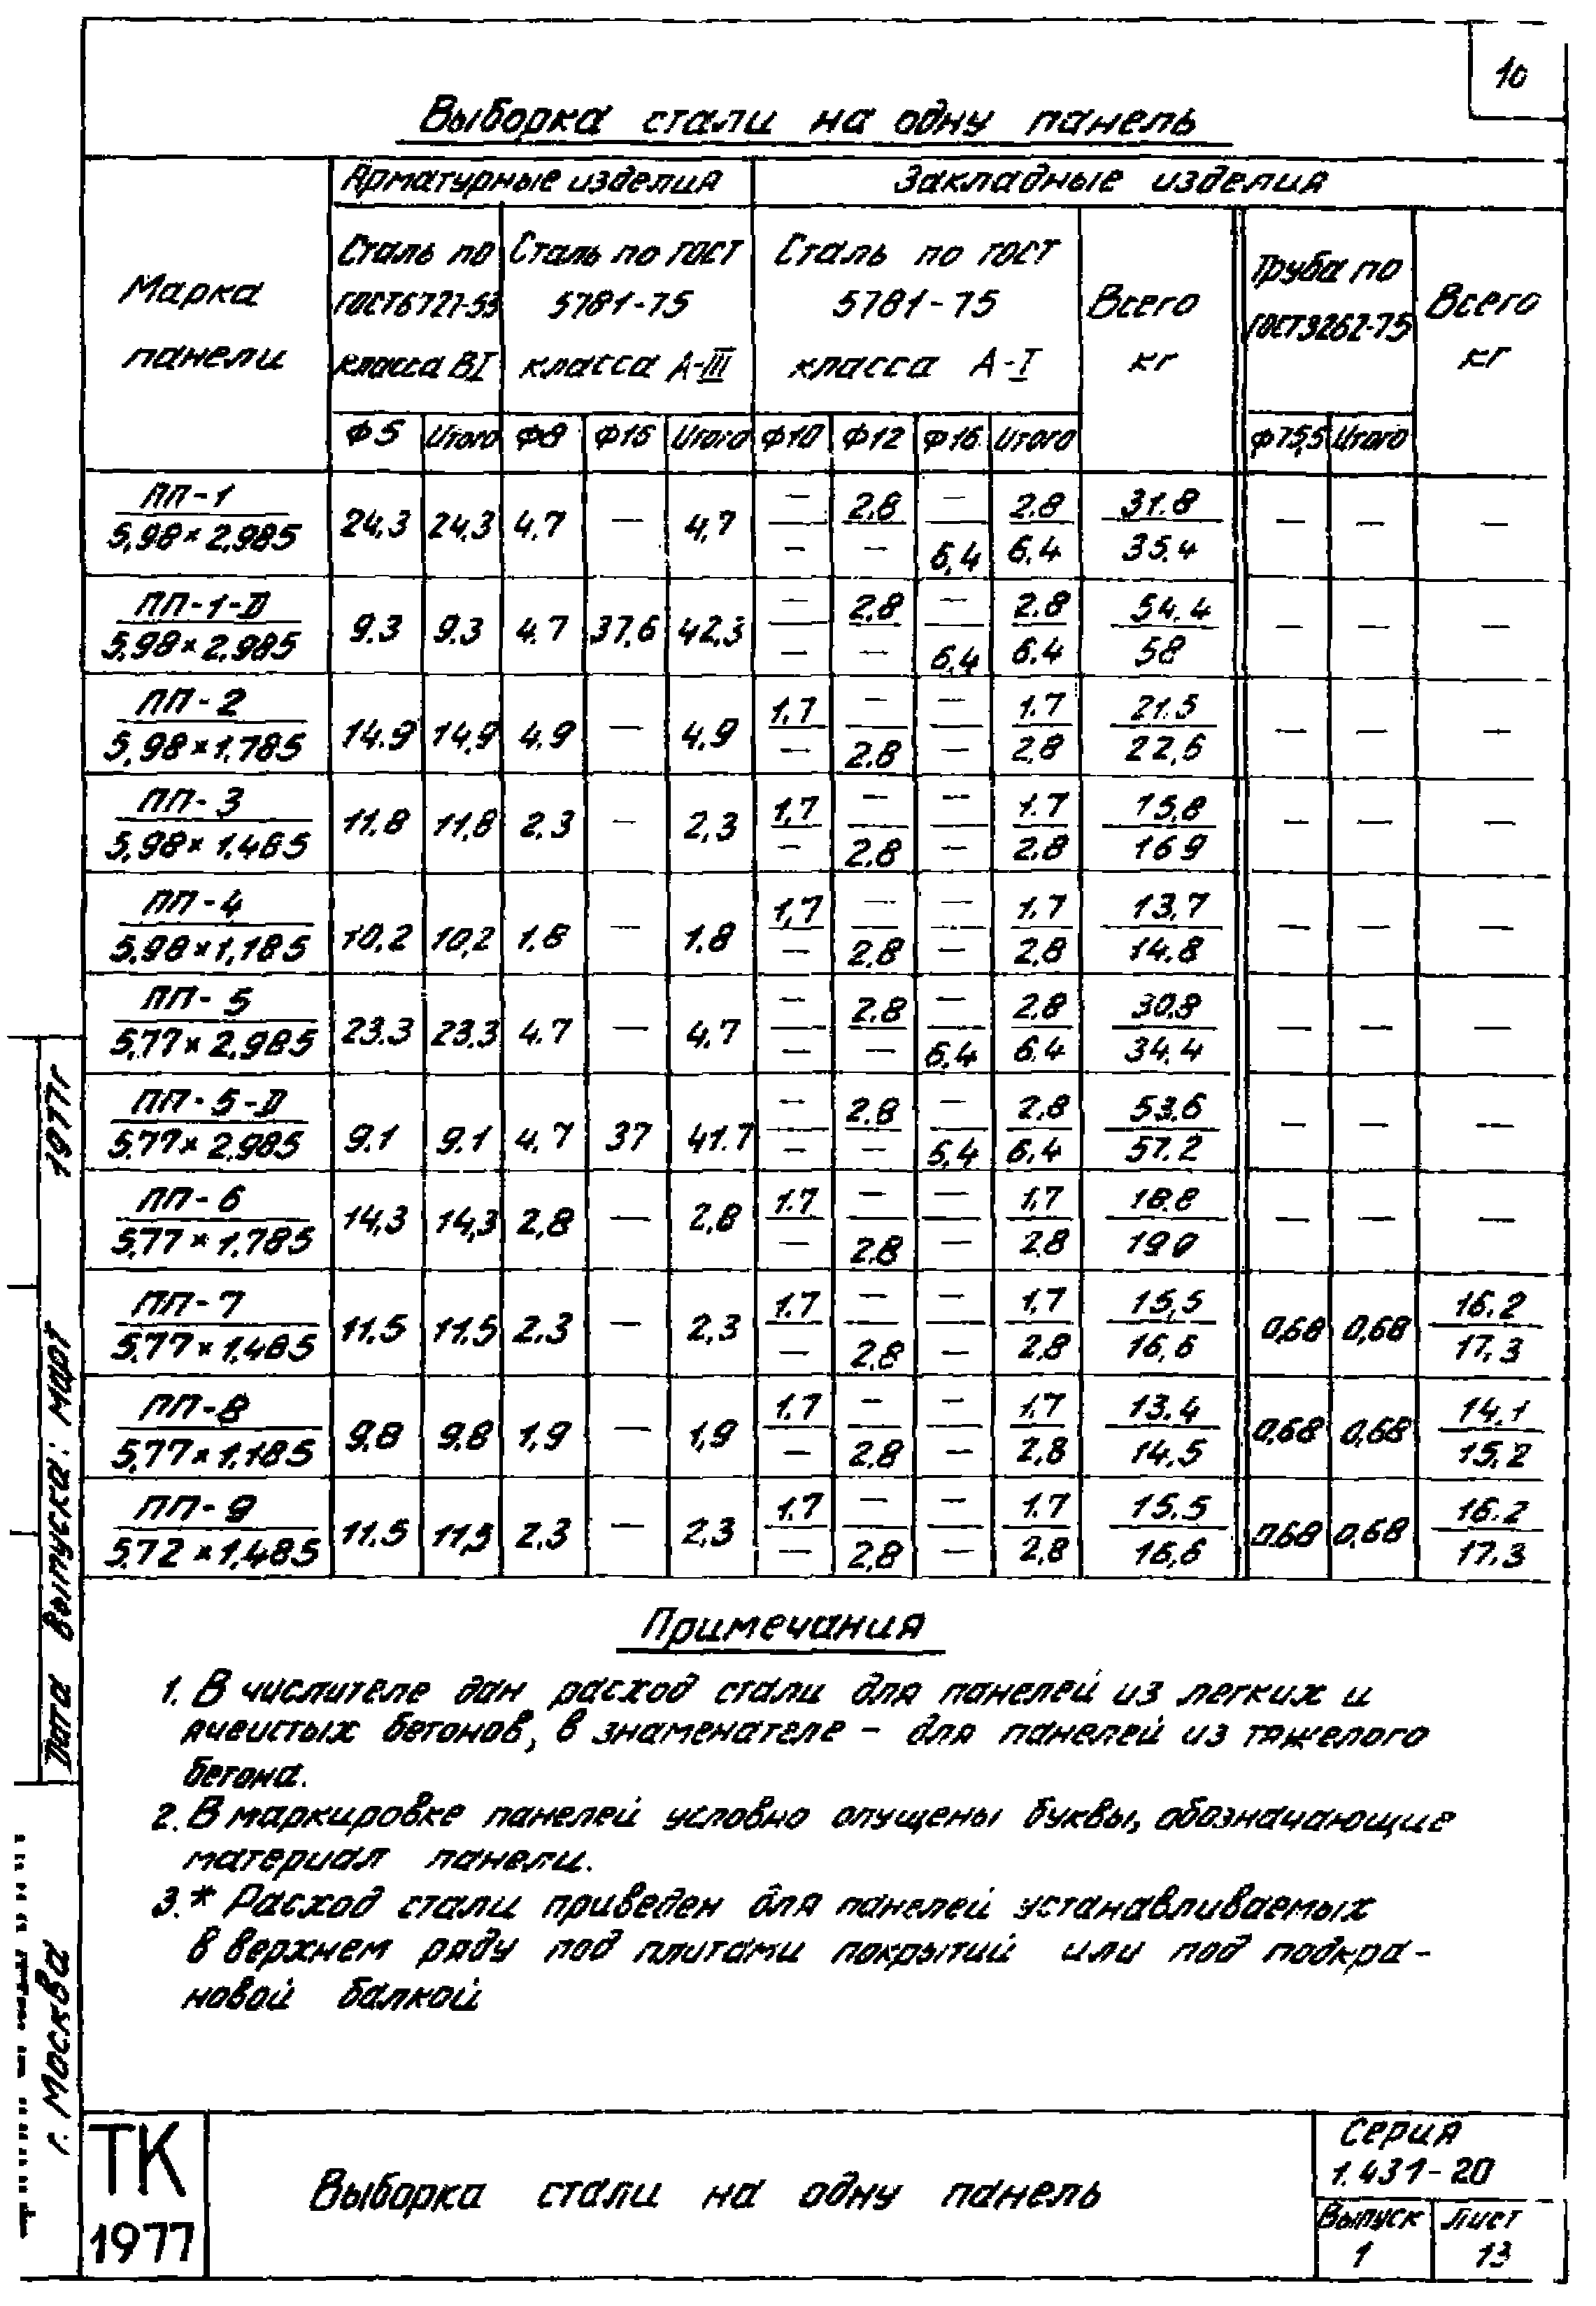 10
Выборка стали на одну панель
Марка панели
Арматурные изделия
Закладные изделия
Сталь по ГОСТ 6727-53 класса ВI
Сталь по ГОСТ 5781-75 класса А-III
Сталь по ГОСТ 5781-75 класса А-I
Всего кг
Труба по ГОСТ 3262-75
Всего кг
Ф5 Итого Ф8 Ф16 Итого Ф10 Ф12 Ф16 Итого Ф75,5 Итого
ПП-1 — 2.8 — 2.8 31.8
24,3 24,3 4.7 — 4,7 — — —
5,98×2,985 — — 6,4 6.4 35.4
ПП-1-D — 2,8 — 2.8 54.4
9.3 9.3 4.7 37,6 42,3 — — —
5,98×2,985 — — 6,4 6.4 58
ПП-2 1,7 — — 1.7 21.5
14.9 14,9 4.9 — 4,9 — — —
5,98×1,785 — 2.8 — 2,8 22,6
ПП-3 1,7 — — 1.7 15,8
11.8 11,8 2.3 — 2,3 — — —
5,98×1,485 — 2.8 — 2.8 16 9
ПП-4 1,7 — — 1.7 13,7
10,2 10,2 1.8 — 1.8 — — —
5,98×1,185 — 2.8 — 2,8 14.8
ПП-5 — 2.8 — 2,8 30.8
23.3 23.3 4.7 — 4,7 — — —
5,77×2,985 — — 6,4 6.4 34.4
ПП-5-D — 2.8 — 2.8 53.6
9.1 9.1 4.7 37 41.7 — — —
5,77×2,985 — — 6,4 6,4 57.2
ПП-6 1.7 — — 1,7 18.8
14,3 14,3 2,8 — 2,8 — — —
5,77×1,785 — 2.8 — 2.8
ПП-7 1.7 — — 1,7 15,5 16.2
11.5 11.5 2.3 — 2,3 0,68 0,68
5,77×1,485 — 2.8 — 2,8 16,6 17,3
ПП-8 1.7 — — 1.7 13.4 14,1
9.8 9.8 1,9 — 1,9 0,68 0,68
5,77×1,185 — 2.8 — 2,8 14,5 15,2
ПП-9 1.7 — — 1.7 15.5 16.2
11.5 11,5 2.3 — 2,3 0,68 0,68
5,72×1,485 — 2,8 — 2,8 16,6 17.3
Примечания
1. В числителе дан расход стали для панелей из легких и
ячеистых бетонов, в знаменателе – для панелей из тяжелого
бетона.
2. В маркировке панелей условно опущены буквы, обозначающие
материал панели.
3.* Расход стали приведен для панелей устанавливаемых
в верхнем ряду под плитами покрытий или под подкра-
новой балкой
Дата выпуска: март 1977г
г. Москва
ТК
1977
Выборка стали на одну панель
Серия
1.431-20
Выпуск Лист
1 13